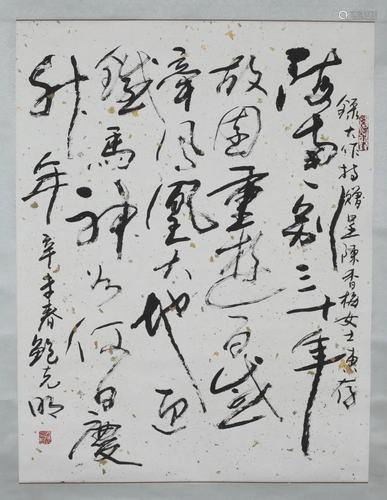 錄大作持贈呈陳香梅女士惠存
一別三十年
故園重遊百感
牽風凰大地
鐵馬神州何日慶
升年
辛未春鮑克明